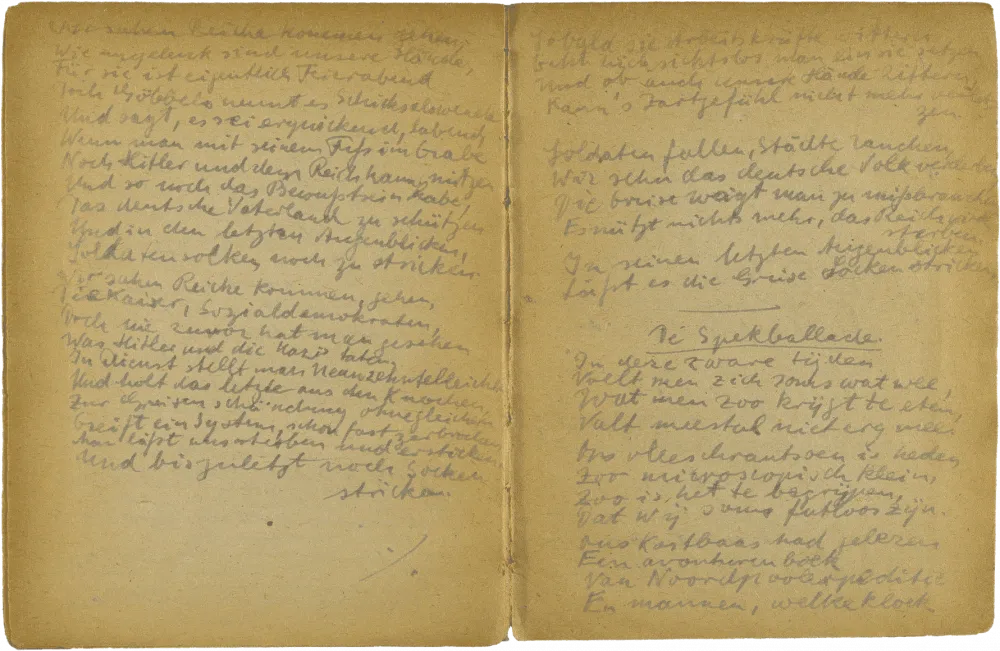 Wir sahen Reiche kommen, gehen,
Wie ungelenk sind unsere Hände,
Für sie ist eigentlich Feierabend
Doch Göbbels nennt es Schicksalswende
Und sagt, es sei erquickend, labend,
Wenn man mit seinem Fuß im Grabe
Noch Hitler und dem Reich kann nützen
Und so noch das Bewußtsein habe,
Das deutsche Vaterland zu schützen
Und in den letzten Augenblicken,
Soldatensocken noch zu stricken.
Wir sahn Reiche kommen, gehen,
Die Kaiser, Sozialdemokraten,
Doch nie zuvor hat man gesehen
Was Hitler und die Nazis taten,
In Dienst stellt man
Und holt das letzte aus den Knochen,
Zur Greisenschändung ohnegleichen
Greift ein System, schon fast zerbrochen
Man läßt uns sterben und ersticken
Und bis zuletzt noch Socken
stricken.
Sobald sie Arbeitskräfte wittern
rücksichtslos man
Und ob auch unsere Hände zittern,
Kann's Zartgefühl nicht mehr
Soldaten fallen, Städte rauchen,
Wir sehn das deutsche Volk
Die Greise man zu mißbrauchen
Es nützt nichts mehr, das Reich wird
sterben.
In seinen letzten Augenblicken
Läßt es die Greise Socken stricken
De Spekballade.
In deze zware tijden
Voelt men zich soms wat wee,
Wat men zoo krijgt te eten,
Valt meestal niet erg mee.
Ons vleeschrantsoen is heden
Zoo microscopisch klein,
Zoo is het te begrijpen,
Dat wij soms futloos zijn.
Ons Kostbaas had gelezen
Een avonturenboek
Van Noordpoolexpeditie
En mannen, welke kloek